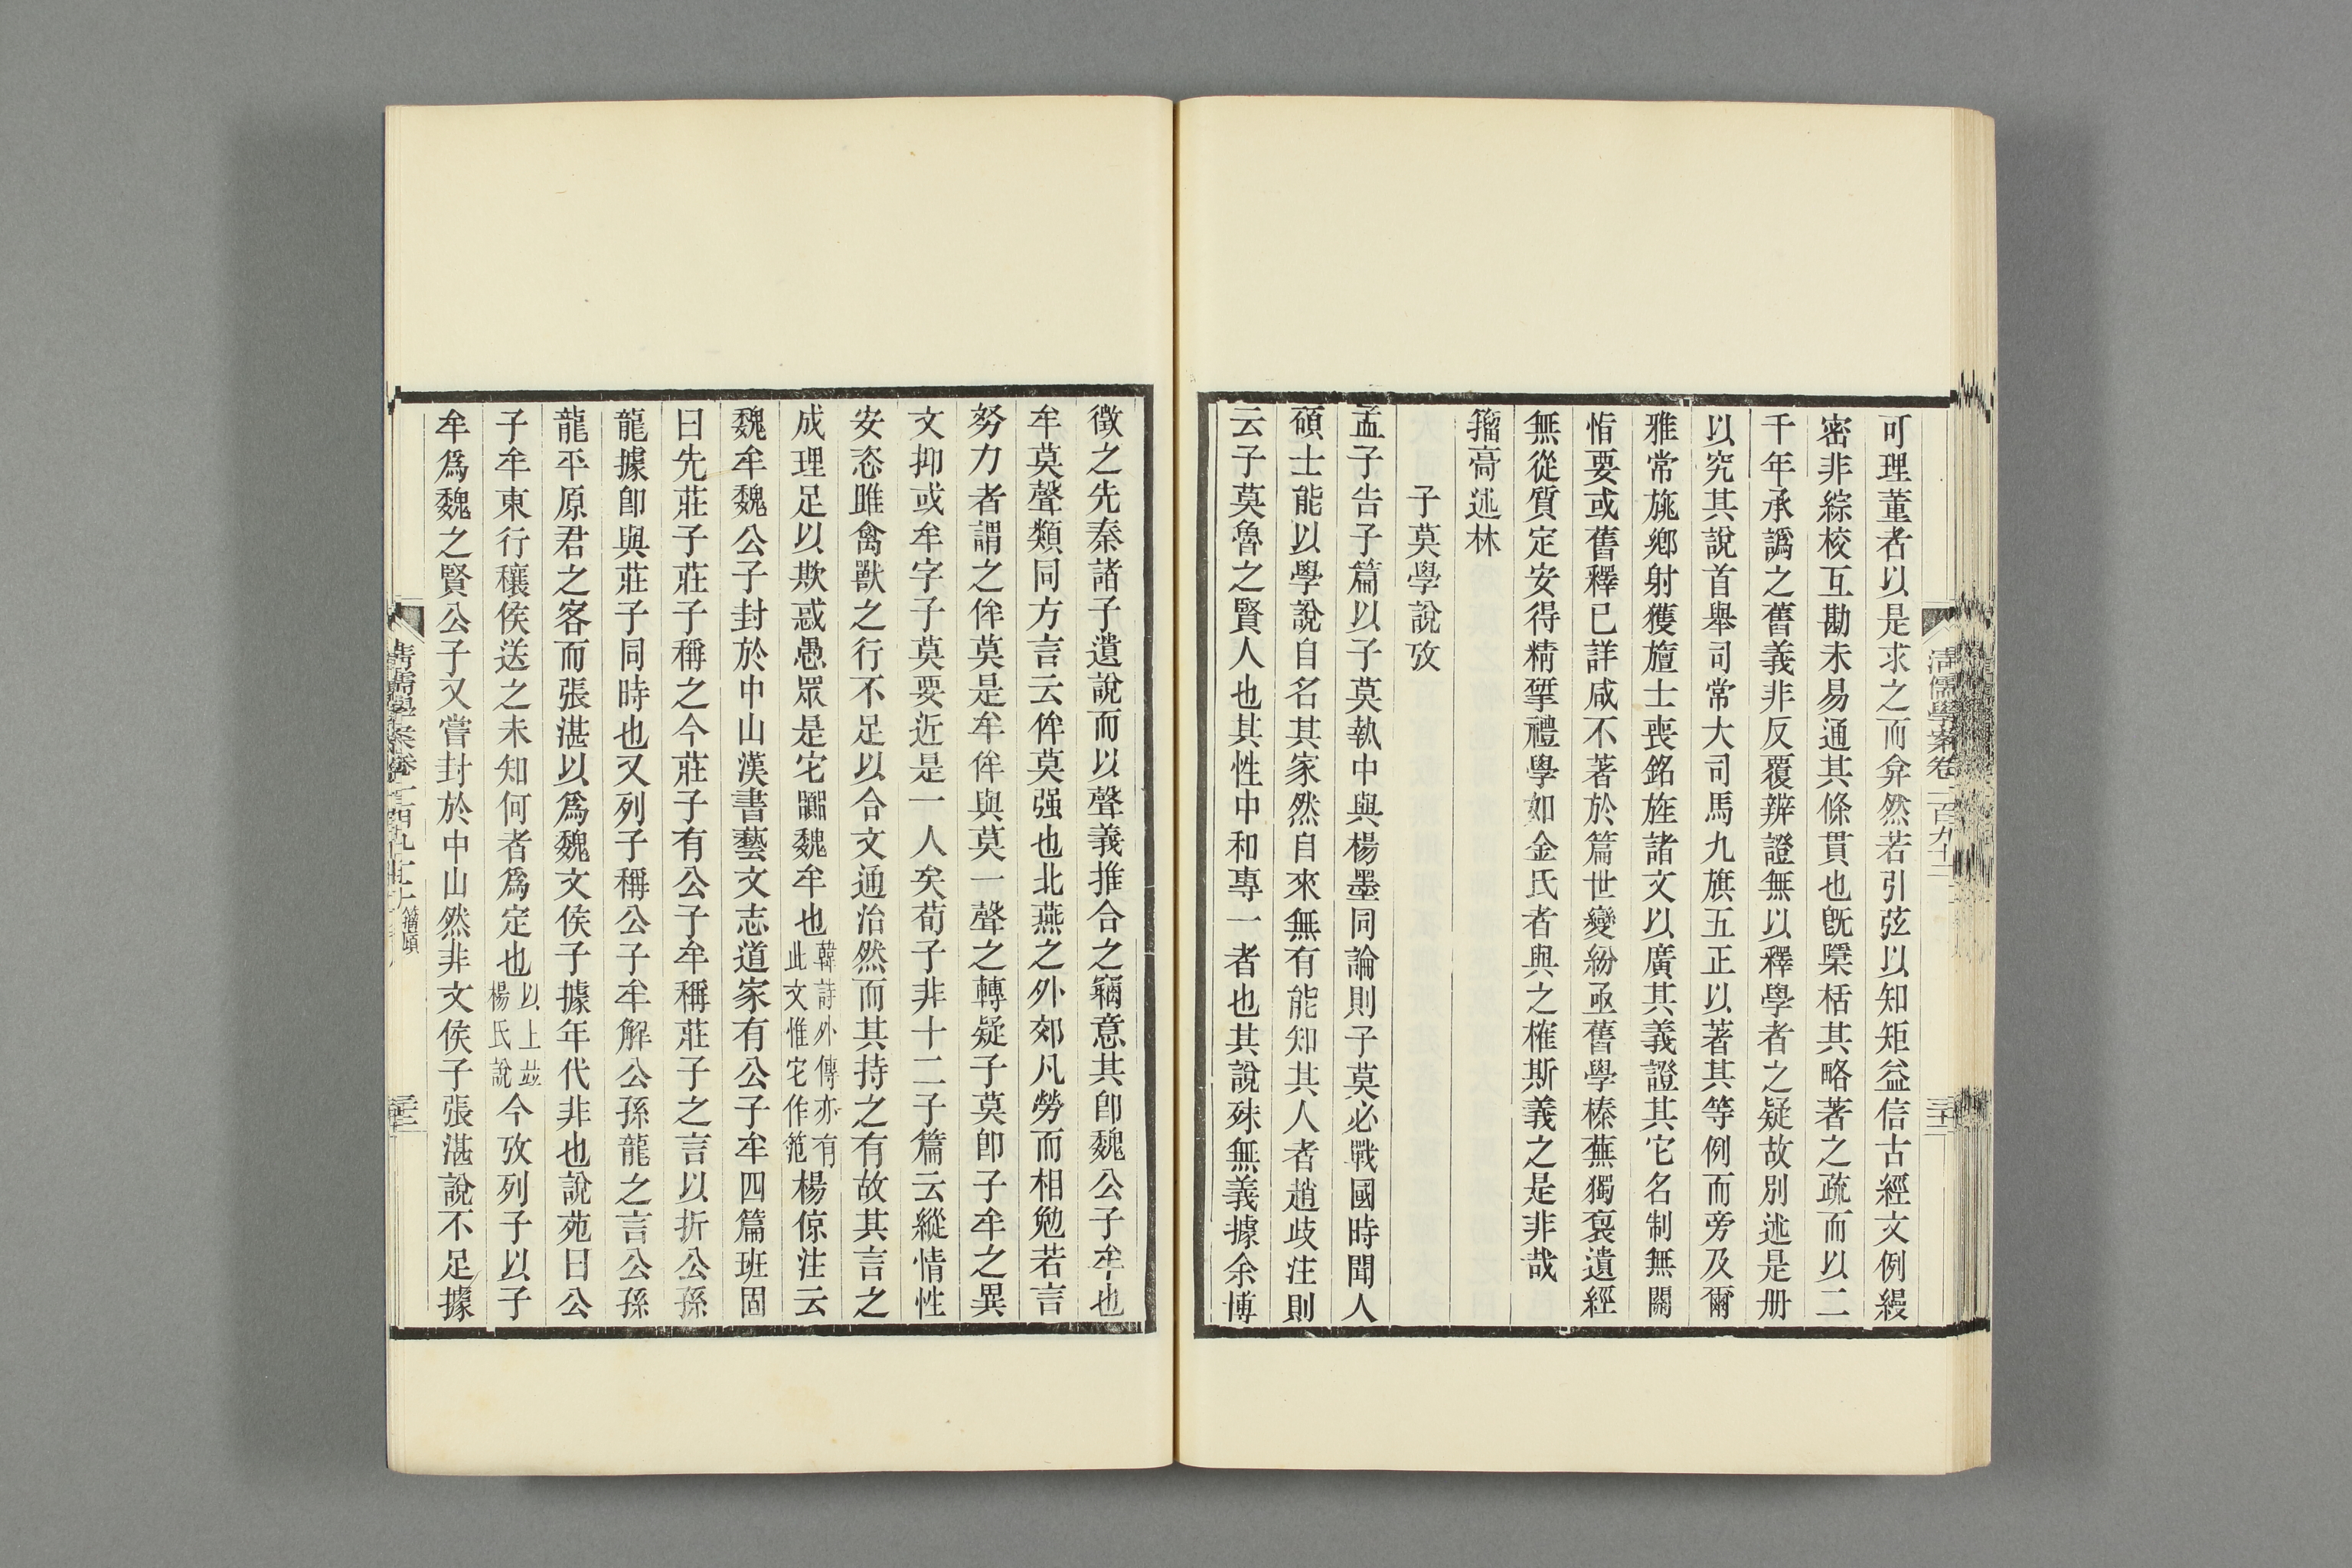 可理董者以是求之而弇然若引弦以知矩益信古經文例縵
密非綜校互勘未易通其條貫也旣檃栝其略著之疏而以二
千年承譌之舊義非反覆辨證無以釋學者之疑故別述是册
以究其說首舉司常大司馬九旗五正以著其等例而旁及爾
雅常旐鄉射獲旜士喪銘旌諸文以廣其義證其它名制無關
恉要或舊釋已詳咸不著於篇世變紛亟舊學榛蕪獨裒遺經
無從質定安得精揅禮學如金氏者與之榷斯義之是非哉
籀𩫞述林
子莫學說攷
孟子告子篇以子莫執中與楊墨同論則子莫必戰國時聞人
碩士能以學說自名其家然自來無有能知其人者趙歧注則
云子莫魯之賢人也其性中和專一者也其說殊無義據余博
徵之先秦諸子遺說而以聲義推合之竊意其卽魏公子牟也
牟莫聲類同方言云侔莫强也北燕之外郊凡勞而相勉若言
努力者謂之侔莫是牟侔與莫一聲之轉疑子莫卽子牟之異
文抑或牟字子莫要近是一人矣荀子非十二子篇云縱情性
安恣雎禽獸之行不足以合文通治然而其持之有故其言之
成理足以欺惑愚眾是它嚻魏牟也韓詩外傳亦有此文惟它作范楊倞注云
魏牟魏公子封於中山漢書藝文志道家有公子牟四篇班固
曰先莊子莊子稱之今莊子有公子牟稱莊子之言以折公孫
龍據卽與莊子同時也又列子稱公子牟解公孫龍之言公孫
龍平原君之客而張湛以爲魏文侯子據年代非也說苑曰公
子牟東行穰侯送之未知何者爲定也以上竝楊氏說今攷列子以子
牟爲魏之賢公子又嘗封於中山然非文侯子張湛說不足據
清儒學案卷一百九十二
籀廎